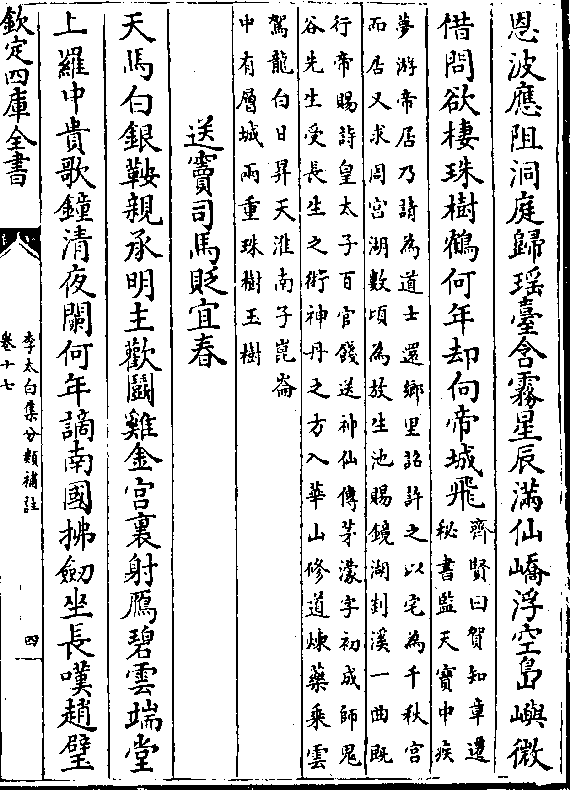 恩波應阻洞庭歸瑶臺含霧星辰滿仙嶠浮空島嶼微
借問欲棲珠樹鶴何年却向帝城飛
齊賢曰賀知章還
秘書監天寶中疾
夢游帝居乃請為道士還鄉里詔許之以宅為千秋宫
而居又求周宫湖數頃為放生池賜鏡湖剡溪一曲既
行帝賜詩皇太子百官餞送神仙傳茅濛字初成師鬼
谷先生受長生之術神丹之方入華山修道煉藥乘雲
駕龍白日昇天淮南子崑崙
中有層城兩重珠樹玉樹
送竇司馬貶宜春
天馬白銀鞍親承明主歡鬭雞金宫裏射鴈碧雲端堂
上羅中貴歌鐘清夜闌何年謫南國拂劒坐長嘆趙璧
欽定四庫全書
李太白集分類補註
卷十七
四